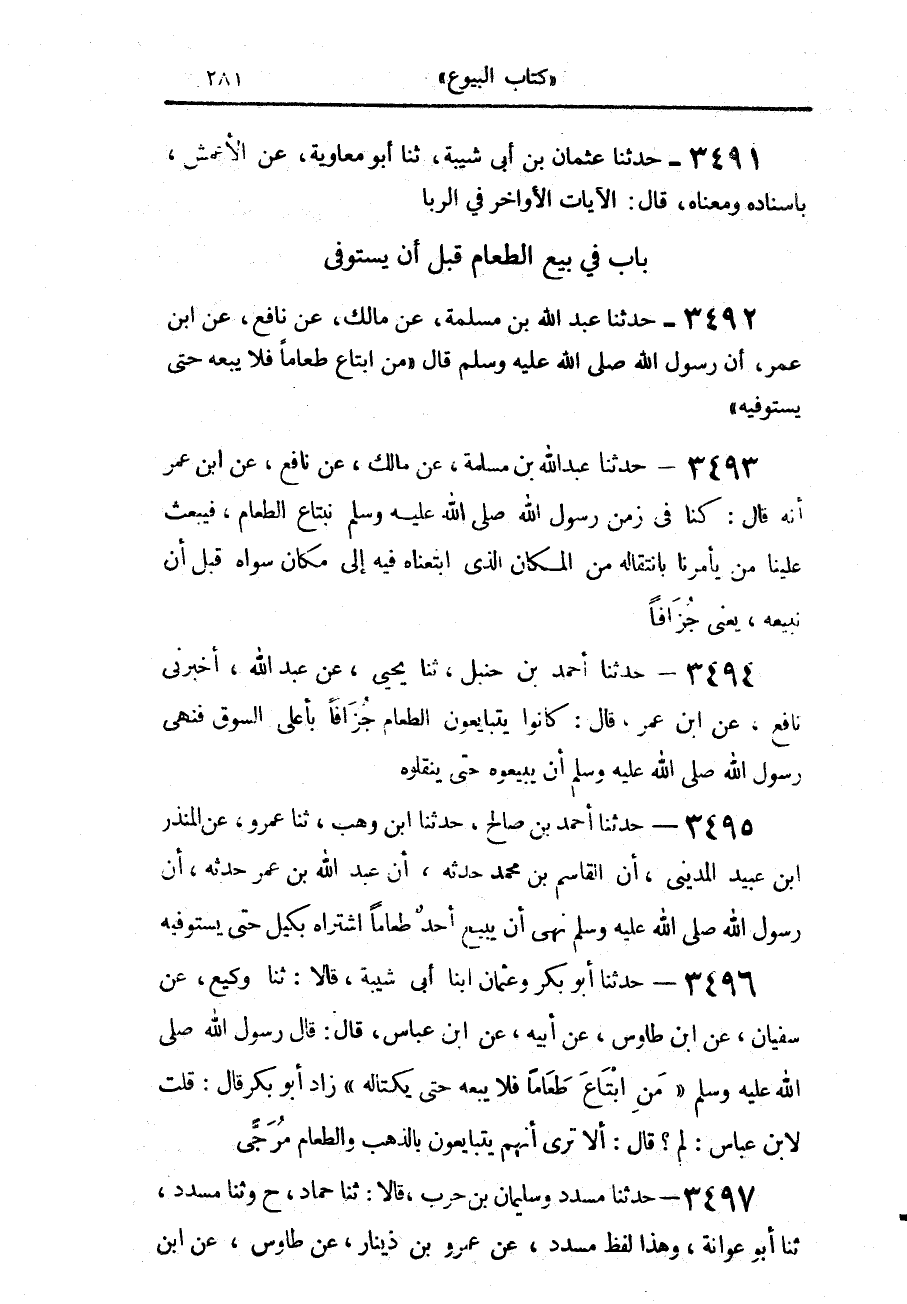 «كتاب البيوع» ٢٨١
٣٤٩١ ـ حدثنا عثمان بن أبي شيبة، ثنا أبو معاوية، عن الأعمش ،
باسناده ومعناه، قال: الآيات الأواخر في الربا
باب في بيع الطعام قبل أن يستوفى
٣٤٩٢ ـ حدثنا عبد الله بن مسلمة، عن مالك، عن نافع، عن ابن
عمر، أن رسول الله صلى الله عليه وسلم قال «من ابتاع طعاماً فلا يبعه حتى
يستوفيه»
٣٤٩٣ — حدثنا عبدالله بن مسلمة ، عن مالك ، عن نافع ، عن ابن عمر
أنه قال : كنا فى زمن رسول الله صلى الله عليه وسلم نبتاع الطعام ، فيبعث
علينا من يأمرنا بانتقاله من المكان الذى ابتعناه فيه إلى مكان سواه قبل أن
نبيعه ، يعنى جُزَافاً
٣٤٩٤ — حدثنا أحمد بن حنبل ، ثنا يحيى ، عن عبد الله ، أخبرنى
نافع ، عن ابن عمر ، قال : كانوا يتبايعون الطعام جُزَافاً بأعلى السوق فنهى
رسول الله صلى الله عليه وسلم أن يبيعوه حتى ينقلوه
٣٤٩٥ — حدثنا أحمد بن صالح ، حدثنا ابن وهب ، ثنا عمرو ، عن المنذر
ابن عبيد المدينى ، أن القاسم بن محمد حدثه ، أن عبد الله بن عمر حدثه ، أن
رسول الله صلى الله عليه وسلم نهى أن يبيع أحدٌ طعاماً اشتراه بكيل حتى يستوفيه
٣٤٩٦ — حدثنا أبو بكر وعثمان ابنا أبى شيبة ، قالا : ثنا وكيع، عن
سفيان ، عن ابن طاوس ، عن أبيه ، عن ابن عباس، قال : قال رسول الله صلى
الله عليه وسلم « مَنِ ابْتَاعَ طَعَاماً فلا يبعه حتى يكتاله » زاد أبو بكر قال : قلت
لابن عباس : لم ؟ قال : ألا ترى أنهم يتبايعون بالذهب والطعام مُرَجًّى
٣٤٩٧ — حدثنا مسدد وسليمان بن حرب ، قالا : ثنا حماد ، ح وثنا مسدد ،
ثنا أبو عوانة ، وهذا لفظ مسدد ، عن عمرو بن ذينار ، عن طاوس ، عن ابن